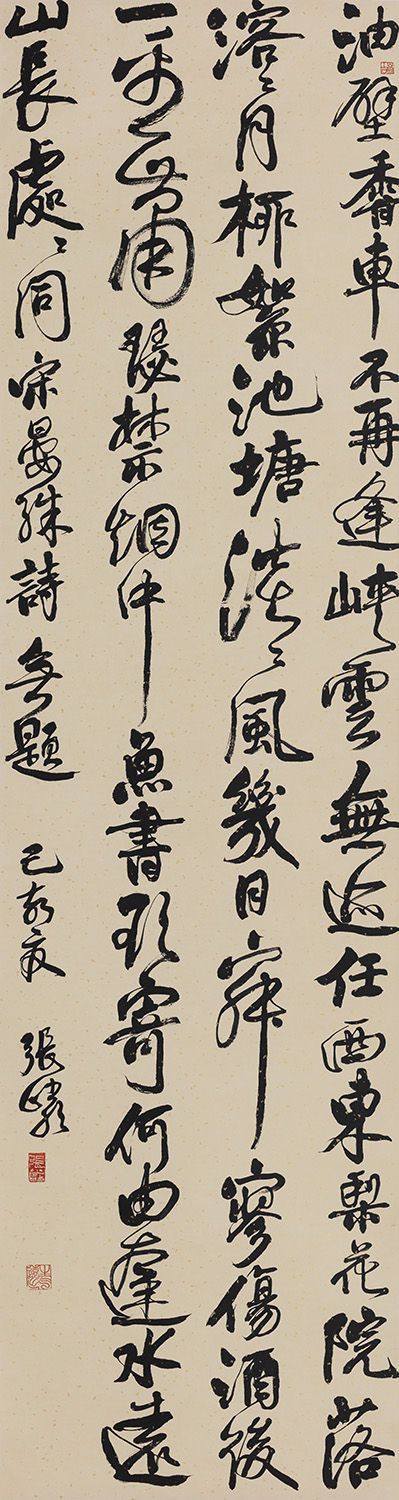 油壁香車不再逢峽雲無迹任西東梨花院落
溶〻月柳絮池塘淡〻風幾日寂寥傷酒後
一番蕭瑟禁烟中魚書欲寄何由達水遠
山長處〻同宋晏殊詩無題 己亥夏 張